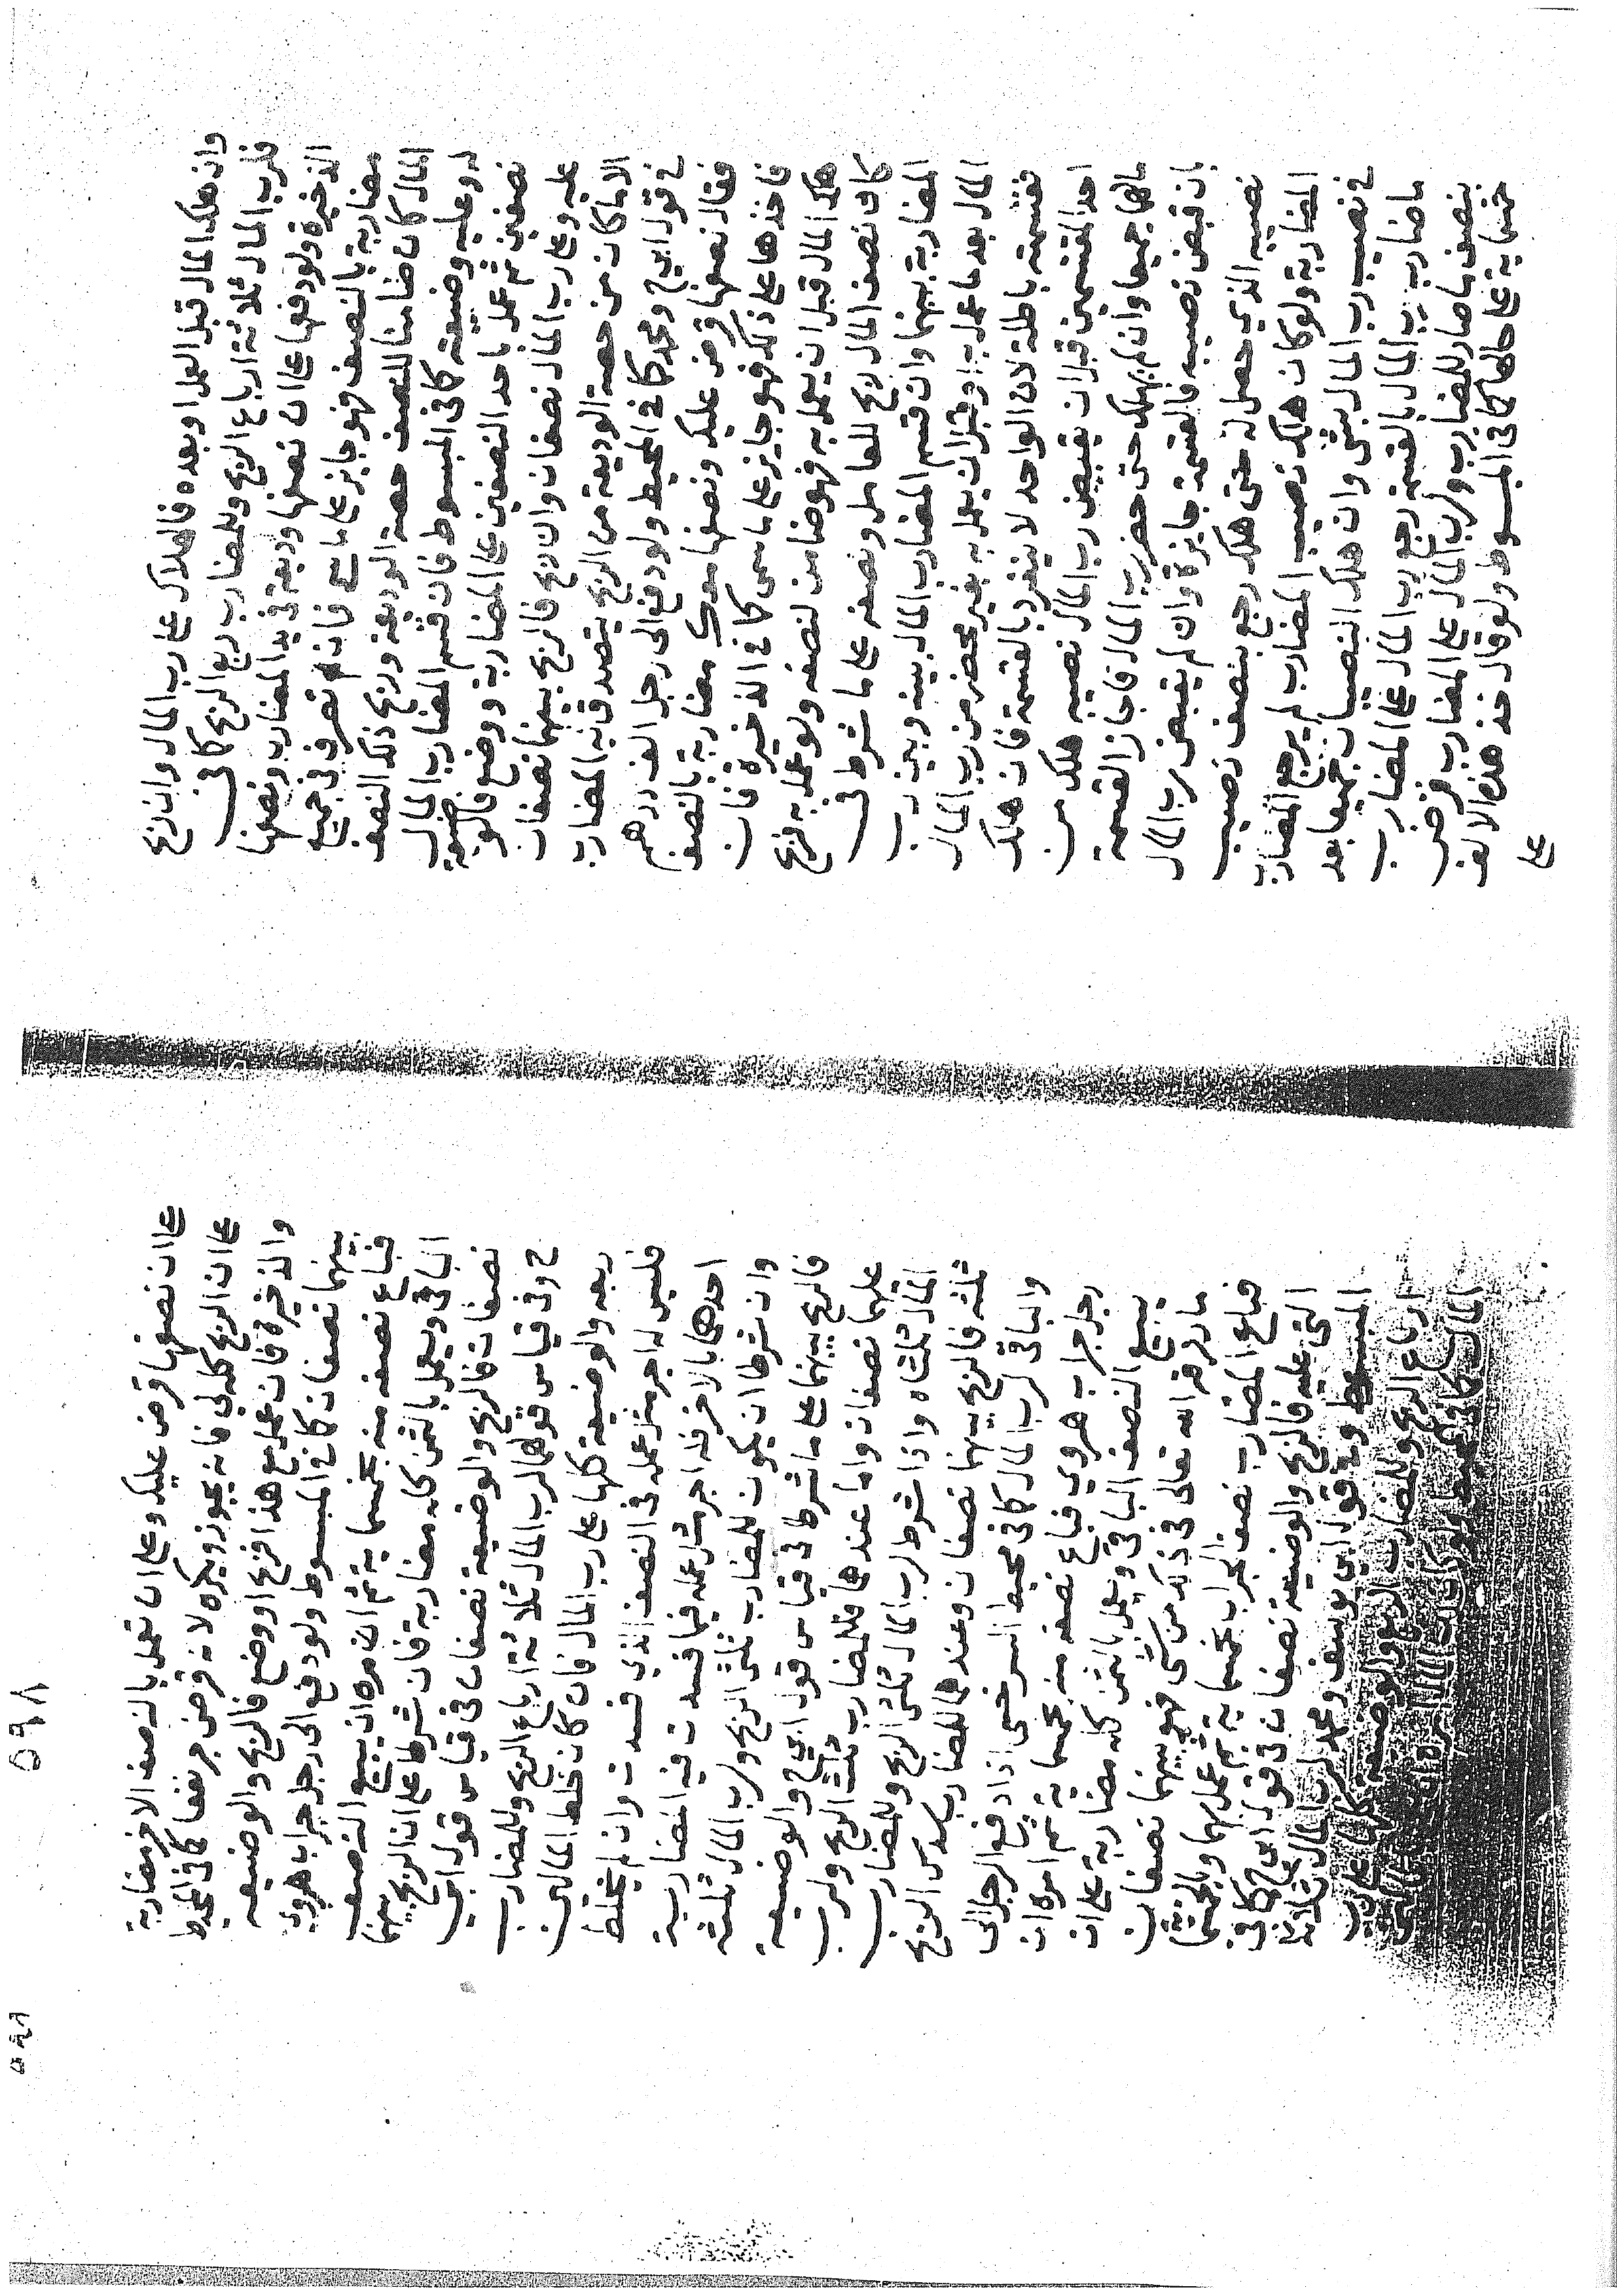 وان هلك المال قبل العمل او بعده فالهلاك على رب المال وان ربح
فلرب المال ثلاثة ارباع الربح وللمضارب ربع الربح كافى
الذخيرة ولو دفعها على ان نصفها وديعة فى يد المضارب ونصفها
مضاربة بالنصف فهو جايز على ما سمى فان تصرف فى جميع
المال كان ضامنا للنصف حصة الوديعة وربح ذلك النصف
له وعليه وضيعته كافى المبسوط فان قسم المضارب المال
نصفين ثم عمل باحد النصفين على المضاربة ووضع فالوضيعة
عليه وعلى رب المال نصفان وان ربح فالربح بينهما نصفان
الا ما كان من حصة الوديعة من الربح يتصدق به المضارب
فى قول ابى ح ومحمد كافى المحيط ولو دفع الى رجل الف درهم
فقال نصفها قرض عليك ونصفها معك مضاربة بالنصف
فاخذها على ذلك فهو جايز على ما سمى كافى الذخيرة فان
هلك المال قبل ان يعمل به فهو ضامن لنصفه ولو عمل به فربح
كان نصف المال ربح للعامل ونصفه على ما شرط فى
المضاربة بينهما وان قسم المضارب المال بينه وبين رب
المال بعد ما عمل به او قبل ان يعمل به بغير محضر من رب المال
فقسمته باطلة لان الواحد لا ينفرد بالقسمة فان هلك
احد القسمين قبل ان يقبض رب المال نصيبه هلك من
مالهما جميعا وان لم يهلك حتى حضر رب المال فاجاز القسمة
بان قبض نصيبه فالقسمة جايزة وان لم يقبض رب المال
نصيبه الذى حصل له حتى هلك رجع بنصف نصيب
المضاربة ولو كان هلك نصيب المضارب لم يرجع المضارب
فى نصيب رب المال بشئ وان هلك النصيبان جميعا بعد
ما ضارب رب المال بالقسمة رجع رب المال على المضارب
بنصف ما صار للمضارب ولرب المال على المضارب قرض
خمسماية على حالها كافى المبسوط ولو قال خذ هذه الالف
على
٥٩٨
على ان نصفها قرض عليك وعلى ان تعمل بالنصف الاخر مضاربة
على ان الربح كله لى فانه يجوز ويكره لانه قرض جر نفعا كافى المحيط
والذخيرة فان عمل مع هذا فربح او وضع فالربح والوضيعه
بينهما نصفان كافى المبسوط ولو دفع الى رجل جرابا هرويا
فباع نصفه منه بخمسماية ثم امره ان يبيع النصف
الباقى ويعمل بالثمن كله مضاربة فان شرطا على ان الربح بينهما
نصفان فالربح والوضيعة نصفان فى قياس قول ابى
ح وفى قياس قولهما لرب المال ثلاثة ارباع الربح وللمضارب
ربعه والوضيعة كلها على رب المال فان كان خلط المالين
فليس له اجر مثل عمله فى النصف الذى فسدت وان لم يخلط
احدهما بالاخر فله اجر مثل عمله فيما فسدت فيه المضاربة
وان شرطا ان يكون للمضارب ثلثى الربح ولرب المال ثلثه
فالربح بينهما على ما شرطا فى قياس قول ابى ح والوضيعة
عليهما نصفان واما عندهما فللمضارب ثلث الربح ولرب
المال ثلثاه واذا شرط لرب المال ثلثى الربح وللمضارب
ثلثه فالربح بينهما نصفان وعندهما للمضارب سدس الربح
والباقى لرب المال كافى محيط السرخسى اذا دفع الرجل الى
رجل جراب هروى فباع نصفه منه بخمسماية ثم امره ان
يبيع النصف الباقى ويعمل بالثمن كله مضاربة على ان
ما رزق الله تعالى فى ذلك من شئ فهو بينهما نصفان
فباع المضارب نصف الجراب بخمسماية ثم عمل بها وبالخمسماية
التى عليه فالربح والوضيعة نصفان فى قول ابى ح كافى
المبسوط وفى قول ابى يوسف ومحمد لرب المال ثلاثة
ارباع الربح وللمضارب الربع والوضيعة كلها على رب
المال كافى المحيط ولو كان